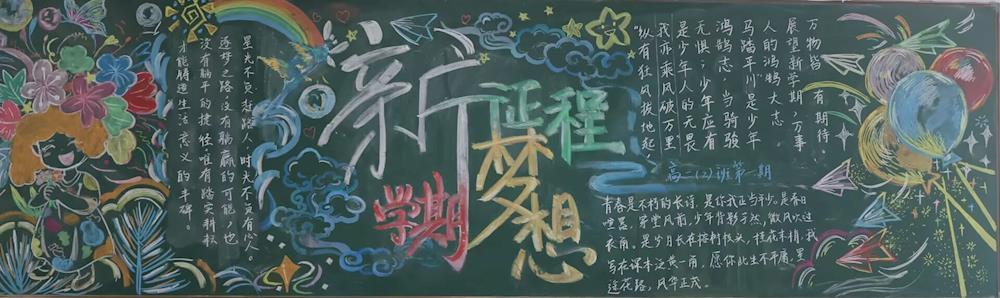 星光不负赶路人,时光不负有心人。
逐梦之路没有躺赢的可能,也
没有躺平的捷径,唯有踏实耕耘
才能铸造生活意义的丰碑。
新
学期
征程
梦想
“纵有狂风拔地起,
我亦乘风破万里
是少年人的无畏
无惧;少年应有
鸿鹄志,当骑骏
马踏平川是少年
人的鸿鹄大志
展望新学期,万事
万物皆有期待
高二(2)班第一期
青春是不朽的长诗,是你我正当年少。是春日
喧嚣,穿堂风前,少年背影孑然,微风吹过
衣角。是岁月长在榕树枝头,桂花未悄,我
写在课本泛黄一角,愿你此生不平庸,
途花路,风华正茂。